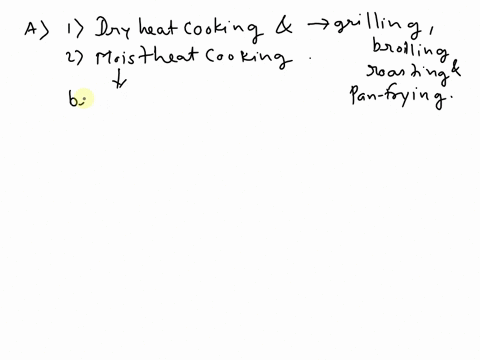 A) 1) Dry heat cooking & → grilling,
broiling
2) Moist heat cooking.
roasting &
Pan-frying.
↓
b: